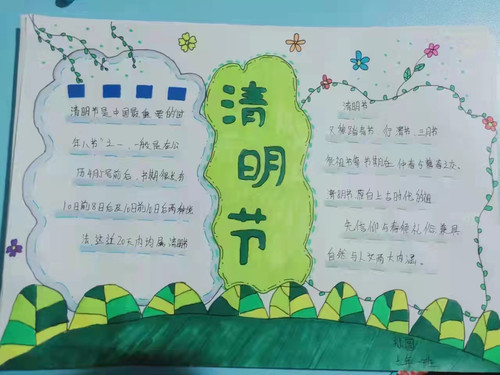 清明节
清明节是中国最重要的时
年八节"之一，一般是在公
历4月5号前后，节期很长有
10日前8日后及10日前10日后两种说
法，这近20天内均属清明节
清明节
又称踏青节、行清节、三月节
祭祖节等节期在仲春与暮春之交。
清明节源自上古时代的祖
先信仰与春祭礼俗兼具
自然与人文两大内涵。